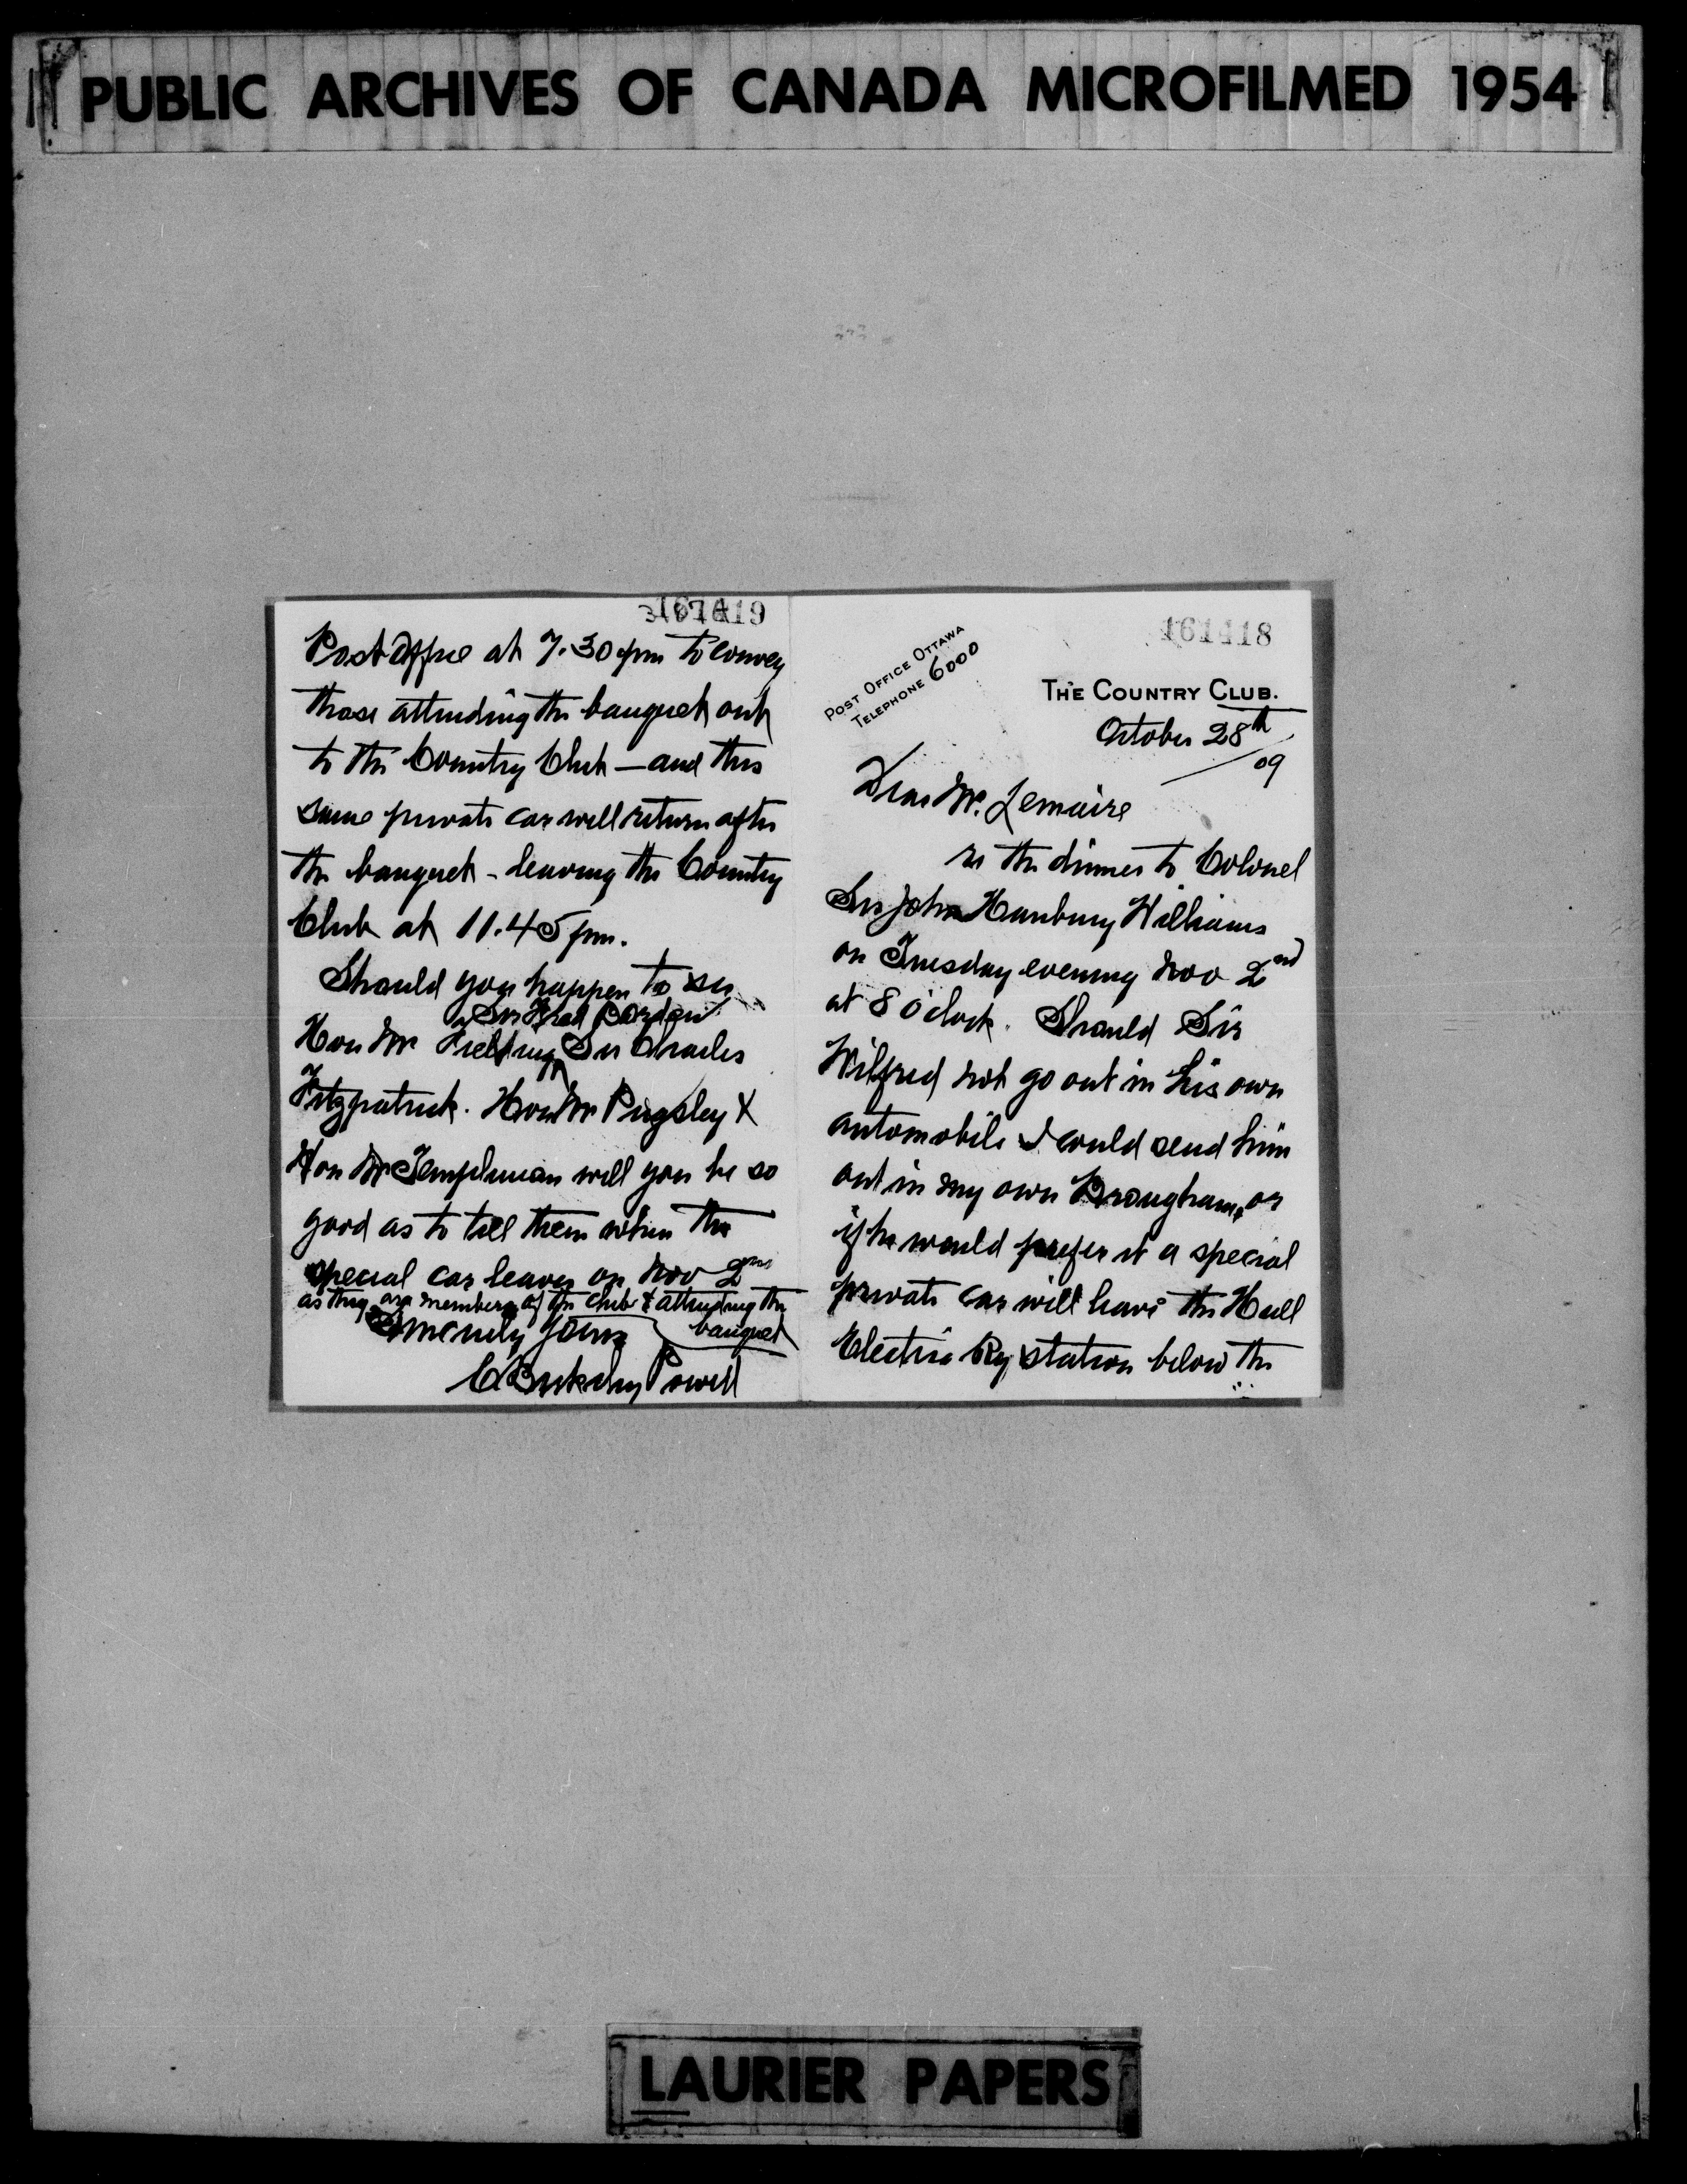 PUBLIC ARCHIVES OF CANADA MICROFILMED 1954
161418
POST OFFICE OTTAWA
TELEPHONE 6000
THE COUNTRY CLUB.
October 28th
/09
Dear Mr. Lemaire
re the dinner to Colonel
Sir John Hanbury Williams
on Tuesday evening Nov 2nd
at 8 o'clock. Should Sir
Wilfred not go out in his own
automobile I could send him
out in my own Brougham, or
if he would prefer it a special
private car will leave the Hull
Electric Ry station below the
Post Office at 7.30 pm to convey
those attending the banquet out
to the Country Club — and this
same private car will return after
the banquet - leaving the Country
Club at 11.45 pm.
Should you happen to see
Sir Fred Borden
Hon Mr Fielding Sir Charles
Fitzpatrick. Hon Mr Pugsley &
Hon Mr Templeman will you be so
good as to tell them when the
special car leaves on Nov 2nd
as they are members of the club & attending the
banquet
Sincerely yours
C Berkeley Powell
LAURIER PAPERS